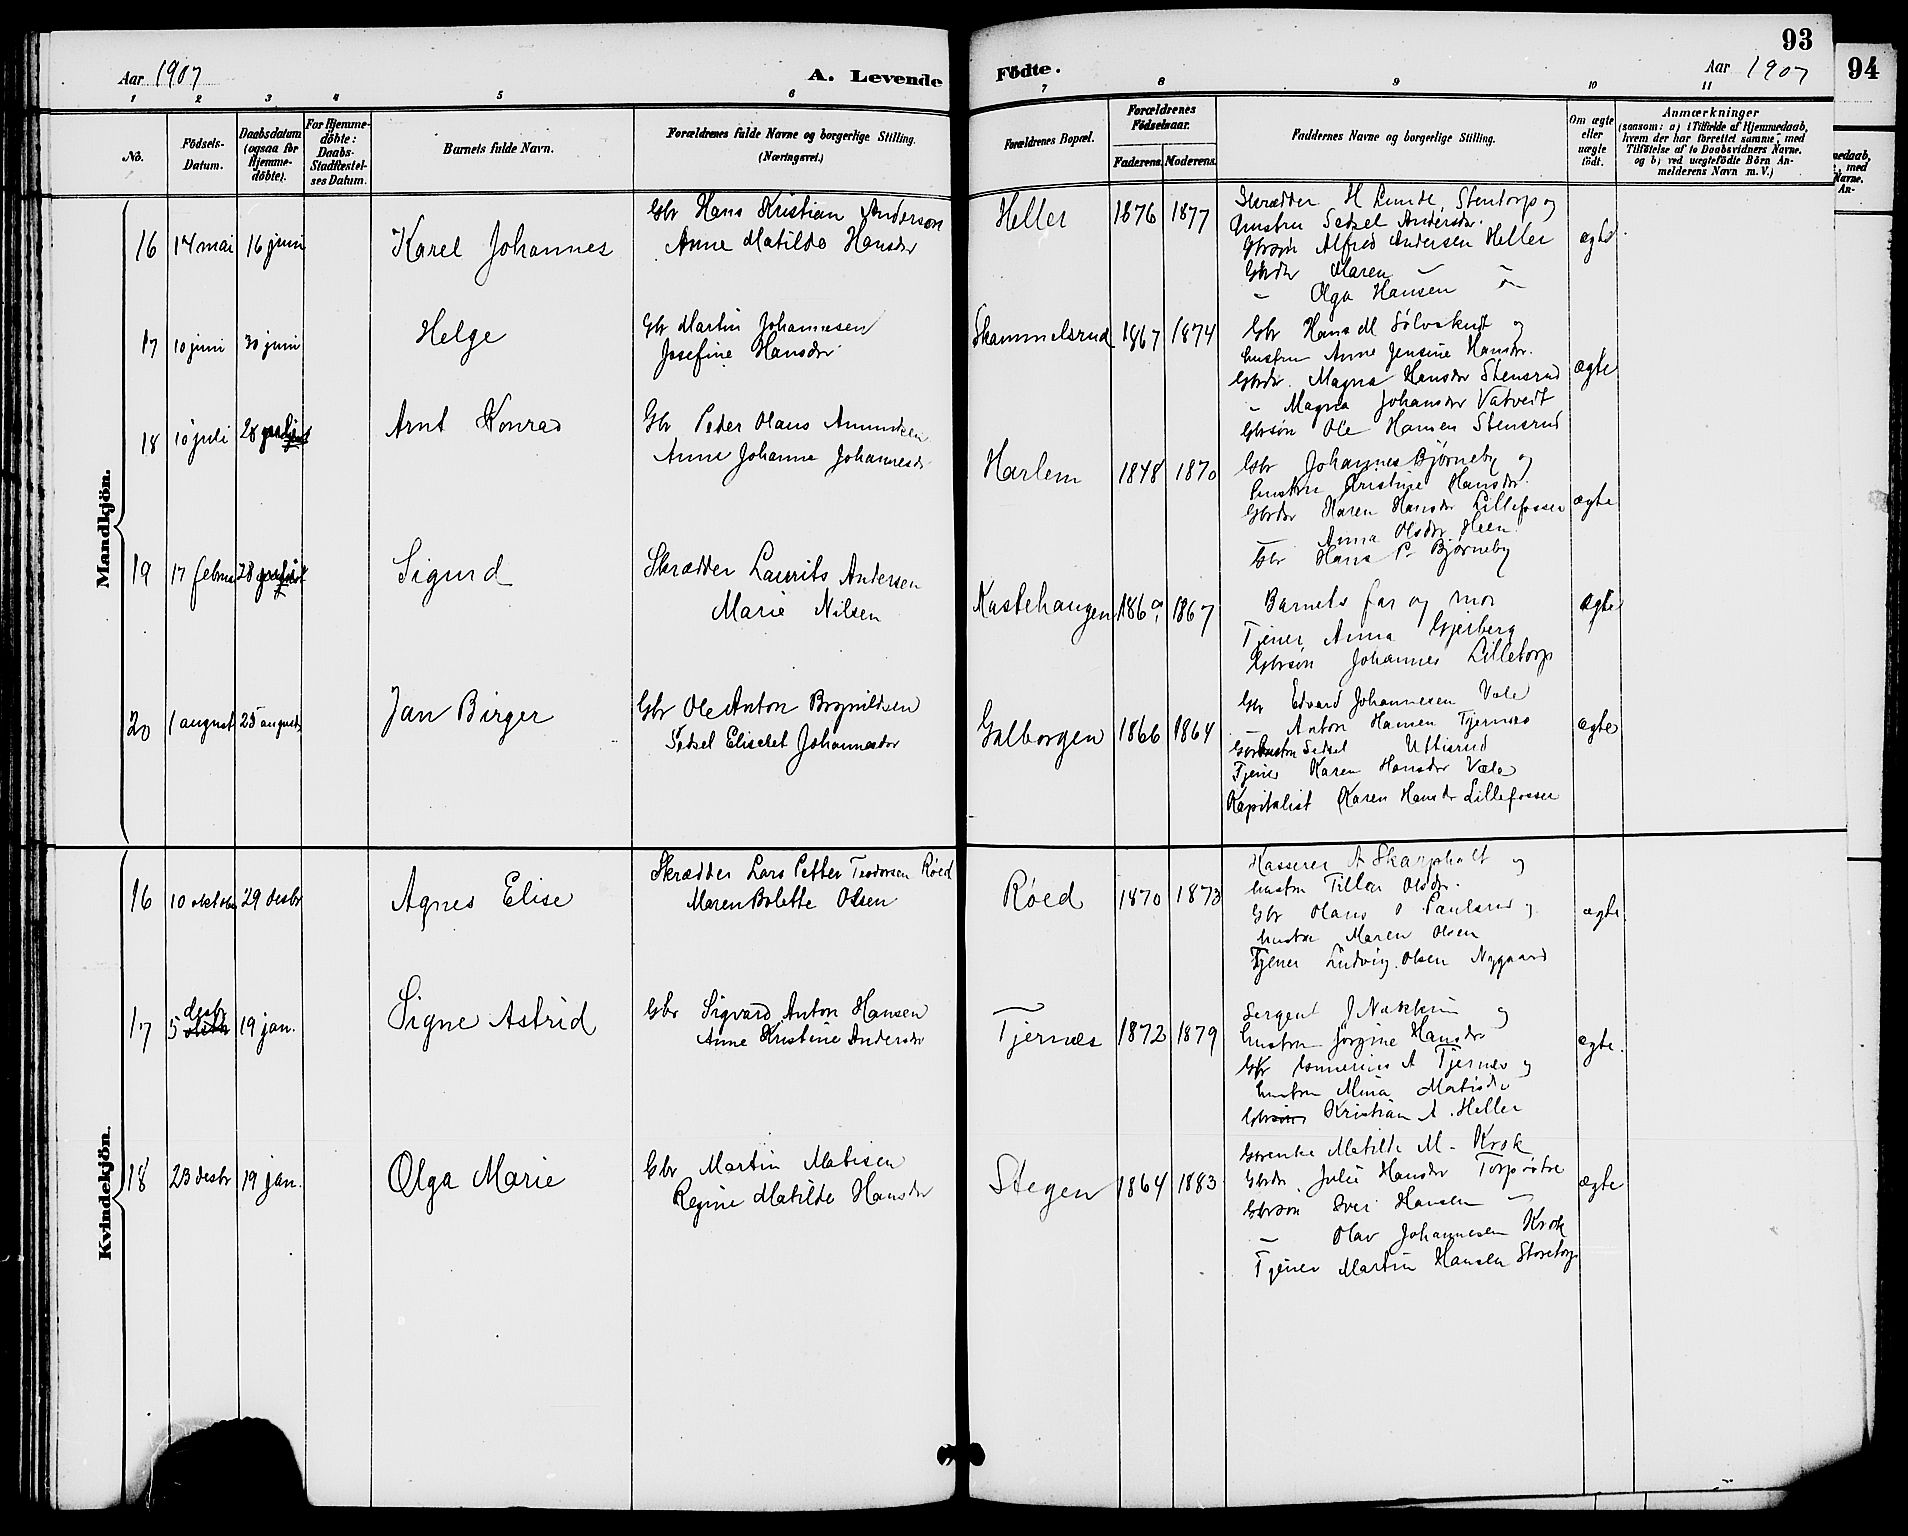 93
94
Aar 1907
A. Levende
Fødte.
Aar 1907
1 2 3 4 5 6 7 8 9 10 11
No.
Fødsels-
Datum.
Daabsdatum
(ogsaa for
Hjemme-
døbte).
For Hjemme-
døbte:
Daabs-
Stadfæstel-
ses Datum.
Barnets fulde Navn.
Forældrenes fulde Navne og borgerlige Stilling.
(Næringsvei.)
Forældrenes Bopæl.
Forældrenes
Fødselsaar.
Faderens. Moderens.
Faddernes Navne og borgerlige Stilling.
Om ægte
eller
uægte
født.
Anmærkninger
(saasom: a) i Tilfælde af Hjemmedaab,
hvem der har forrettet samme, med
Tilføielse af to Daabsvidners Navne.
og b) ved uægtefødte Børn An-
melderens Navn m. V.)
Mandkjön.
16 14 mai 16 juni
Karel Johannes
Gbr Hans Kristian Anderson
Anne Matilde Hansdr
Heller 1876 1877
Skrædder H Lunde, Stentorp og
hustru Sedsel Andersdr.
Gbrsøn Alfred Andersen Heller
Gbrdr Maren
Olga Hansen
ægte
17 10 juni 30 juni
Helge
Gbr Martin Johannesen
Josefine Hansdr
Skammelsrud 1867 1874
Gbr Hans M Sølvskudt og
hustru Anne Jensine Hansdr.
Gbrdr. Magna Hansdr Stensrud
Magna Johansdr Vatvedt
Gbrsøn Ole Hansen Stensrud
ægte
18 10 juli 28
Arnt Konrad
Gbr Peder Olaus Amundsen
Anne Johanne Johannesdr
Harlem 1848 1870
Gbr Johannes Bjørneby og
hustru Kristine Hansdr.
Gbrdr Karen Hansdr Lillefosser
Anna Olsdr Heen
Gbr Hans P. Bjørneby
ægte
19 17 februar 28
Sigurd
Skrædder Laurits Andersen
Marie Nilsen
Kastehaugen 1867
Barnets far og mor
Tjener Anna Gjerberg
Gbrsøn Johannes Lilletorp
ægte
20 1 august 25 august
Jan Birger
Gbr Ole Anton Brynildsen
Sedsel Elisebet Johannesdr
Galborgen 1866 1864
Gbr Edvard Johannesen Vale
Anton Hansen Tjernæs
Sedsel
Tjener Karen Hansdr Vale
Kapitalist Karen Hansdr Lillefosser
ægte
Kvindekjön.
16 10 oktober 29 desbr
Agnes Elise
Skrædder Lars Petter Teodorsen Röed
Maren Bolette Olsen
Röed 1870 1873
Kasserer A Skarpholt og
hustru Tilla Olsdr.
Gbr Olaus O Paulsrud og
hustru Maren Olsen
Tjener Ludvig Olsen Nygaard
ægte
17 5 desbr 19 jan.
Signe Astrid
Gbr Sigvard Anton Hansen
Anne Kristine Andersdr
Tjernæs 1872 1879
Sergent J Nakkim og
hustru Jørgine Hansdr
Gbr A Tjernæs og
hustru Mina Matisdr
Kristian A. Heller
ægte.
18 23 desbr 19 jan.
Olga Marie
Gbr Martin Matisen
Regine Matilde Hansdr
Stegen 1864 1883
Matilde M. Krok
Gbrdr Julie Hansdr Torpødre
Gbrsøn Iver Hansen
Olav Johannesen Krok
Tjener Martin Hansen Storetorp
ægte
medaab,
med
Navne.
An-